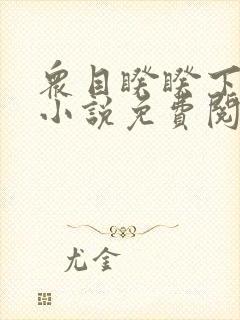 衆目睽睽下
小説免費閱
尤金